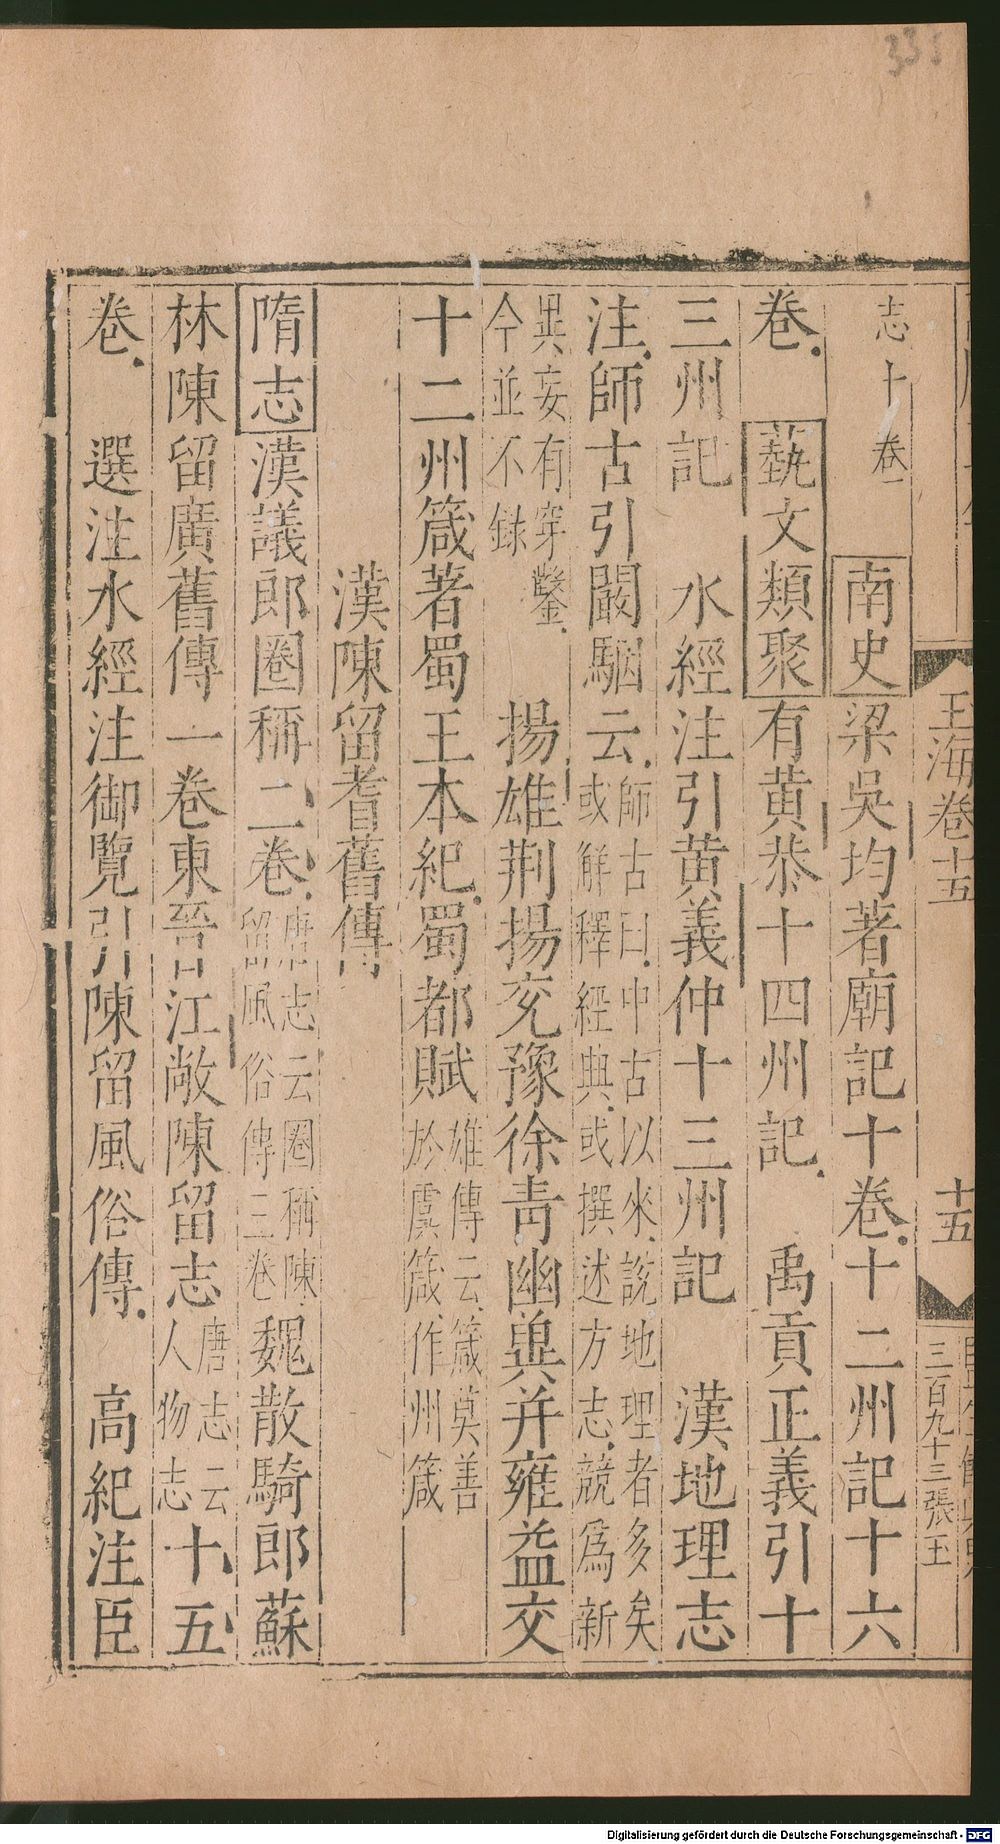 335
玉海卷十五
十五
三百九十三張玉
志十卷一　南史梁吳均著廟記十卷十二州記十六
卷　藝文類聚有黄恭十四州記　禹貢正義引十
三州記　水經注引黄義仲十三州記　漢地理志
注師古引闞駰云師古曰中古以來說地理者多矣或解釋經典或撰述方志競爲新
異妄有穿鑿今並不録　揚雄荆揚兖豫徐青幽冀并雍益交
十二州箴著蜀王本紀蜀都賦雄傳云箴莫善於虞箴作州箴
漢陳留耆舊傳
隋志漢議郎圈稱二卷唐志云圈稱陳留風俗傳三卷魏散騎郎蘇
林陳留廣舊傳一卷東晉江敞陳留志唐志云人物志十五
卷　選注水經注御覽引陳留風俗傳　高紀注臣
Digitalisierung gefördert durch die Deutsche Forschungsgemeinschaft - DFG